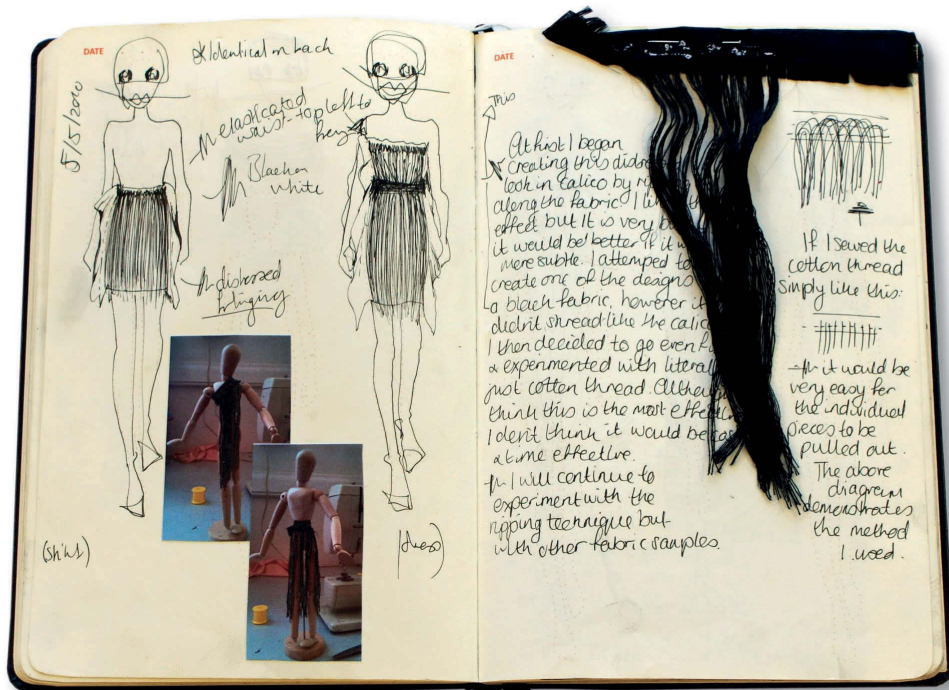 DATE
5/5/2010
Identical on back
elasticated
waist- top left to
Black or
white
distressed
fringing
(Skirt)
(dress)
DATE
This
At first I began
creating this
look in calico by
along the fabric. I
effect but It is very
it would be better if it
more subtle. I attemped to
create one of the designs
a black fabric, however it
didn't shread like the calico
I then decided to go even
& experimented with literal
just cotton thread. Although
think this is the most
I don't think it would be
& time effective.
I will continue to
experiment with the
ripping technique but
with other fabric samples.
If I sewed the
cotton thread
simply like this:
it would be
very easy for
the individual
pieces to be
pulled out.
The above
diagram
demonstrates
the method
I used.